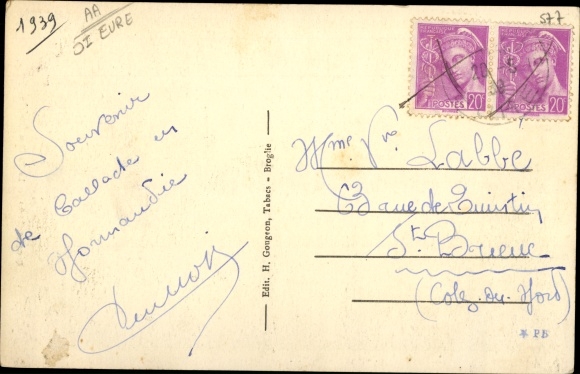 1939
AA
SI EURE
577
POSTES 20c
POSTES 20c
Souvenir
de Ballade en
Normandie
Edit. H. Gougeon, Tabacs - Broglie
Mme Vve Labbe
rue de Quintin
St Brieuc
(Côtes-du-Nord)
* PB